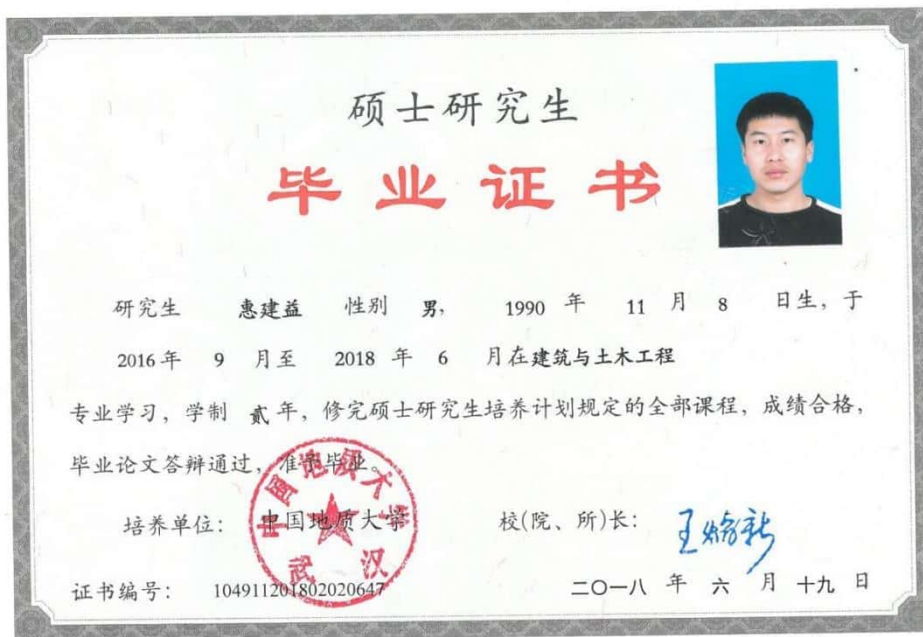 硕士研究生
毕业证书
研究生 惠建益 性别 男, 1990 年 11 月 8 日生, 于
2016年 9 月至 2018 年 6 月在建筑与土木工程
专业学习, 学制 贰年, 修完硕士研究生培养计划规定的全部课程, 成绩合格,
毕业论文答辩通过, 准予毕业。
培养单位: 中国地质大学 校(院、所)长:
中国地质大学
武汉
证书编号: 104911201802020647 二〇一八 年 六 月 十九 日